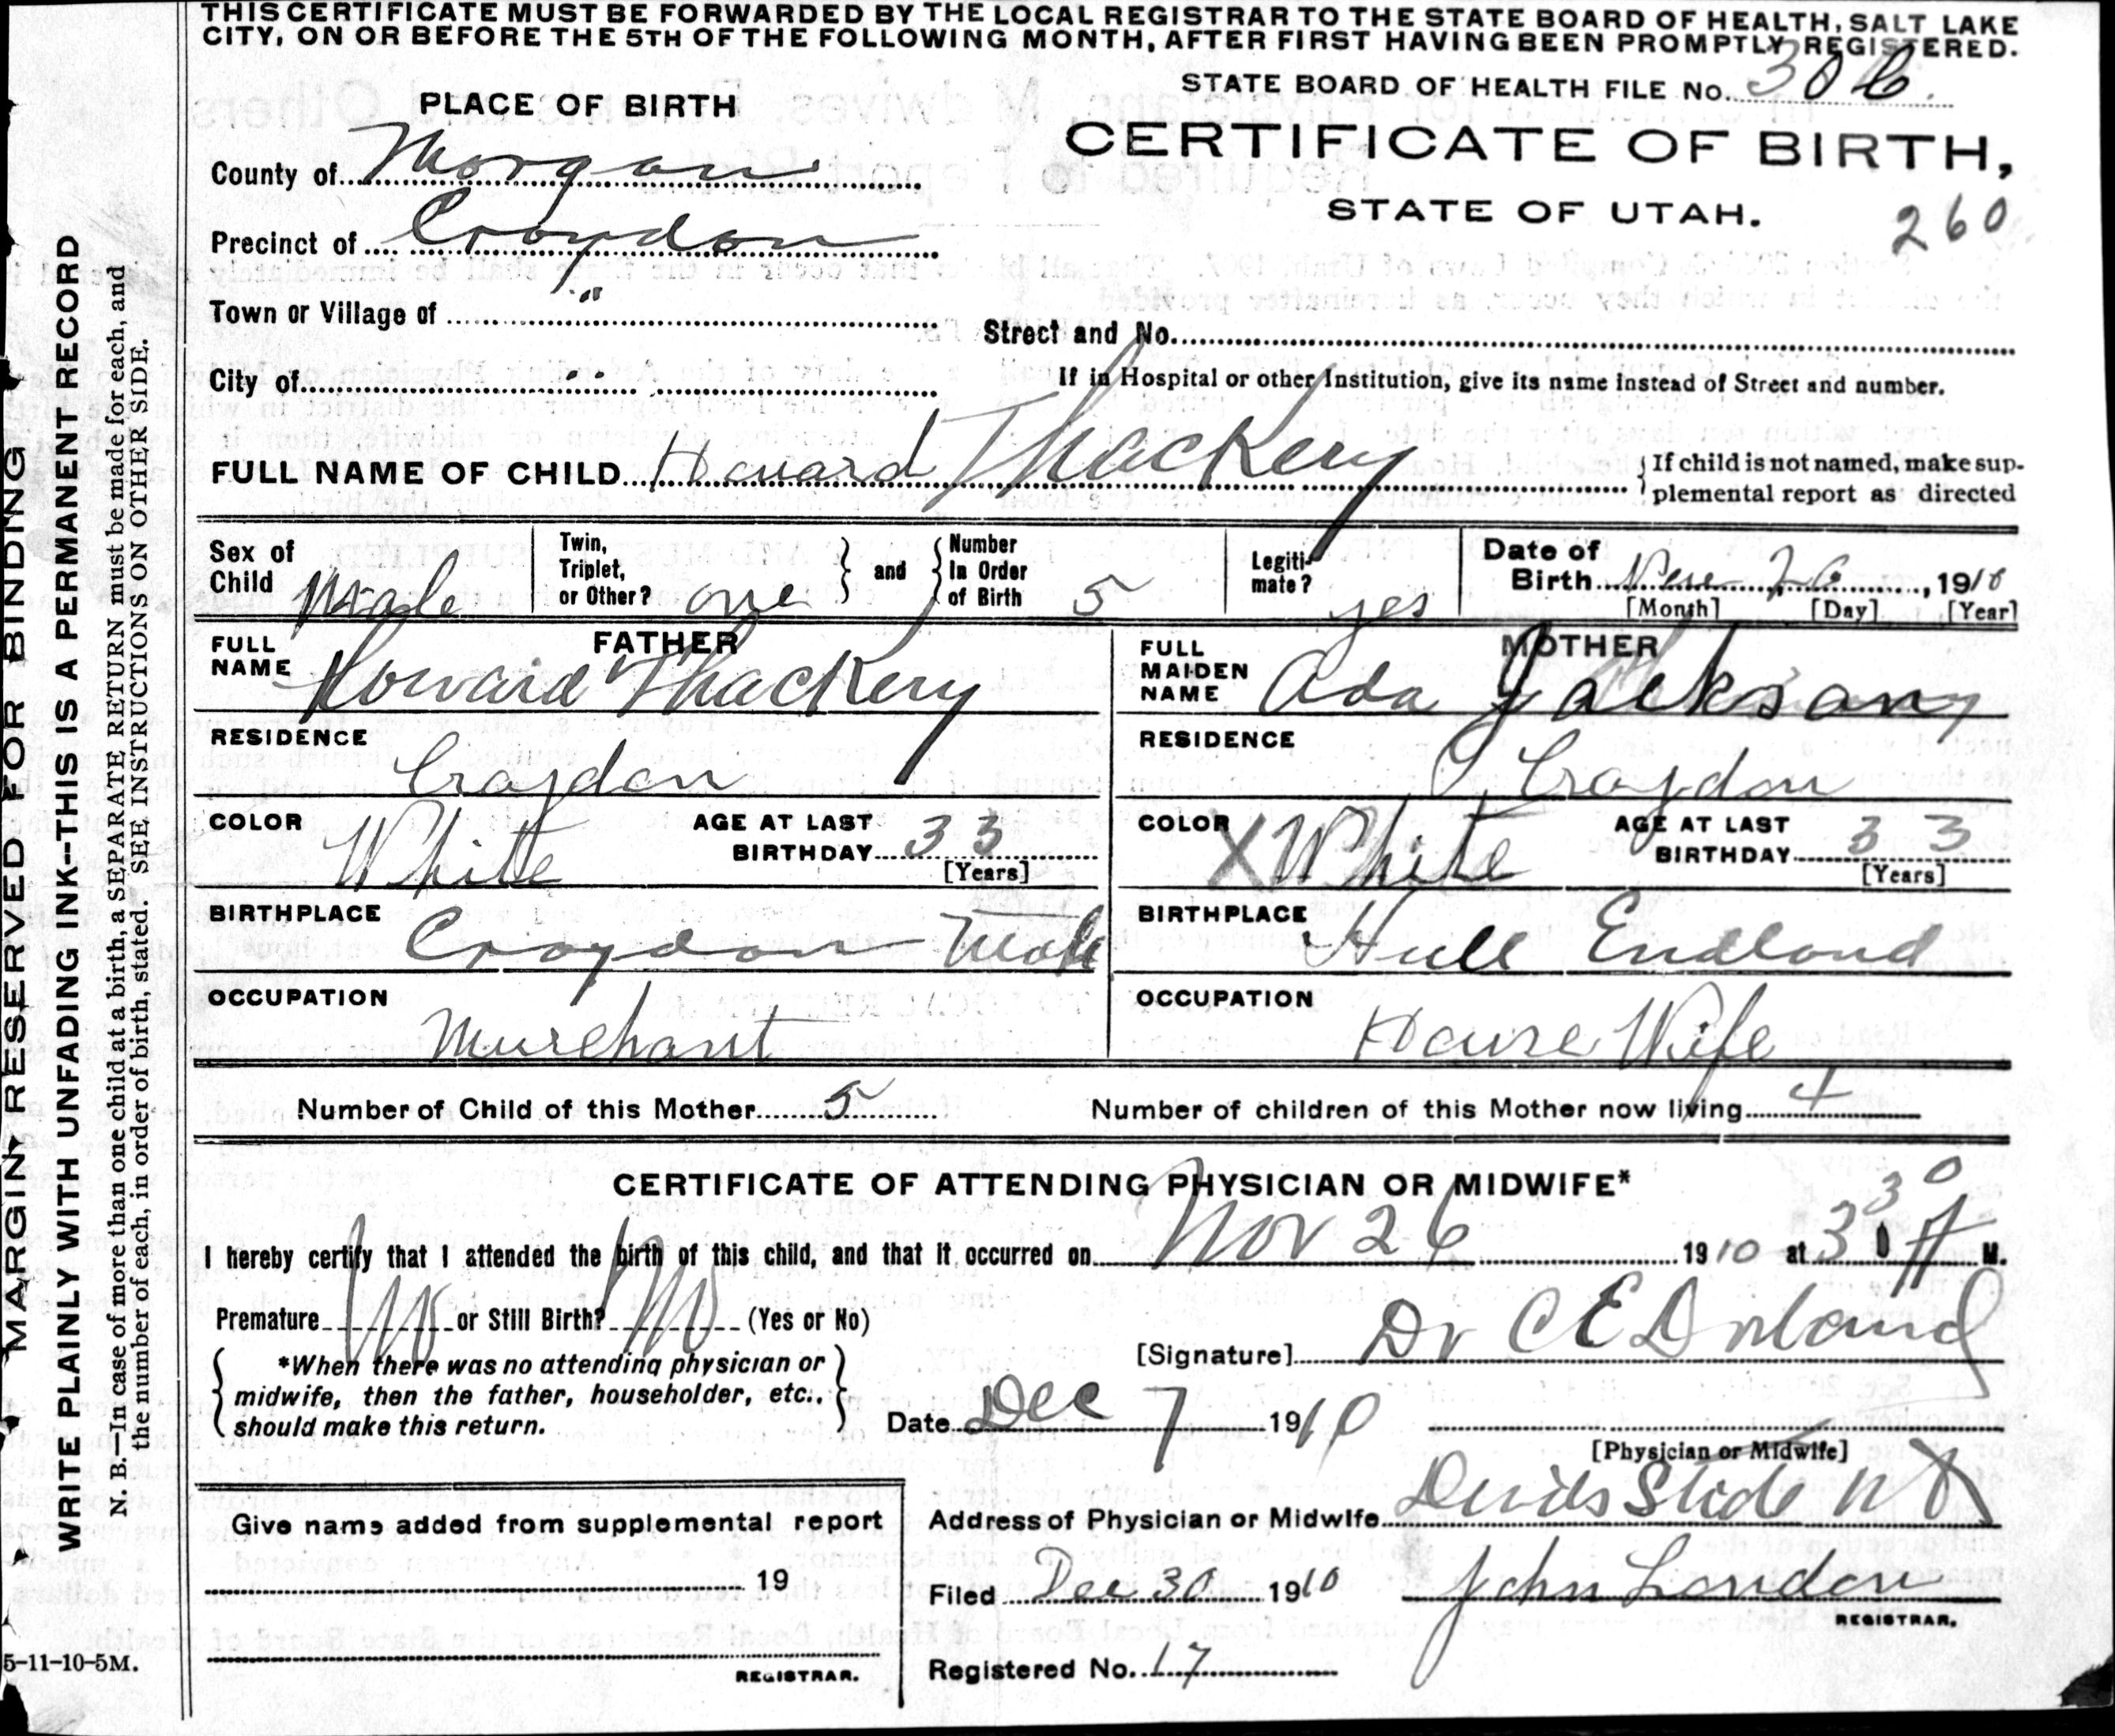 THIS CERTIFICATE MUST BE FORWARDED BY THE LOCAL REGISTRAR TO THE STATE BOARD OF HEALTH, SALT LAKE
CITY, ON OR BEFORE THE 5TH OF THE FOLLOWING MONTH, AFTER FIRST HAVING BEEN PROMPTLY REGISTERED.
STATE BOARD OF HEALTH FILE No. 306
PLACE OF BIRTH
CERTIFICATE OF BIRTH,
STATE OF UTAH.
260
County of Morgan
Precinct of Croydon
Town or Village of "
Street and No.
City of "
If in Hospital or other Institution, give its name instead of Street and number.
FULL NAME OF CHILD Howard Thackery
{If child is not named, make sup-
plemental report as directed
Sex of Child Male
Twin, Triplet, or Other? one
and
Number In Order of Birth 5
Legiti-mate? yes
Date of Birth 26, 1910
[Month] [Day] [Year]
FATHER
FULL NAME Howard Thackery
RESIDENCE Croydon
COLOR White
AGE AT LAST BIRTHDAY 33
[Years]
BIRTHPLACE Croydon Utah
OCCUPATION Murchant
MOTHER
FULL MAIDEN NAME Ada Jackson
RESIDENCE Croydon
COLOR X White
AGE AT LAST BIRTHDAY 33
[Years]
BIRTHPLACE Hull Endland
OCCUPATION House Wife
Number of Child of this Mother 5
Number of children of this Mother now living 4
CERTIFICATE OF ATTENDING PHYSICIAN OR MIDWIFE*
I hereby certify that I attended the birth of this child, and that it occurred on Nov 26 1910 at 3 30 A M.
Premature No or Still Birth? No (Yes or No)
*When there was no attending physician or
midwife, then the father, householder, etc.,
should make this return.
[Signature] Dr C E
Date Dec 7 1910
[Physician or Midwife]
Address of Physician or Midwife Devils Slide
Give name added from supplemental report
19
REGISTRAR.
Filed Dec 30 1910
John London
REGISTRAR.
Registered No. 17
MARGIN RESERVED FOR BINDING
WRITE PLAINLY WITH UNFADING INK--THIS IS A PERMANENT RECORD
N. B.—In case of more than one child at a birth, a SEPARATE RETURN must be made for each, and
the number of each, in order of birth, stated. SEE INSTRUCTIONS ON OTHER SIDE.
5-11-10-5M.